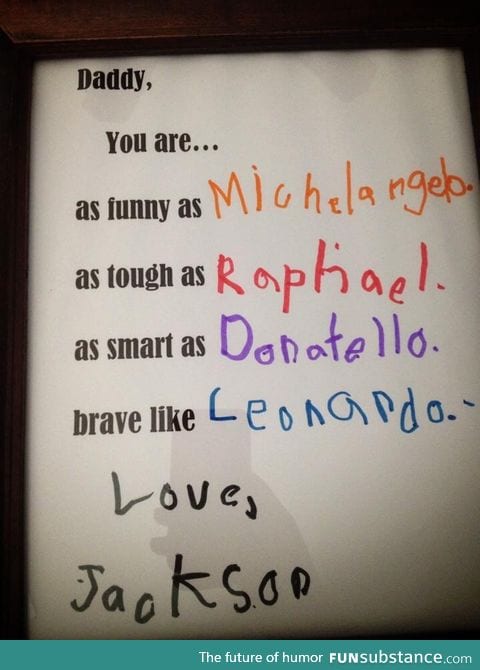 Daddy,
You are...
as funny as Michelangelo.
as tough as Raphael.
as smart as Donatello.
brave like Leonardo.
Love,
Jackson
The future of humor FUNsubstance.com